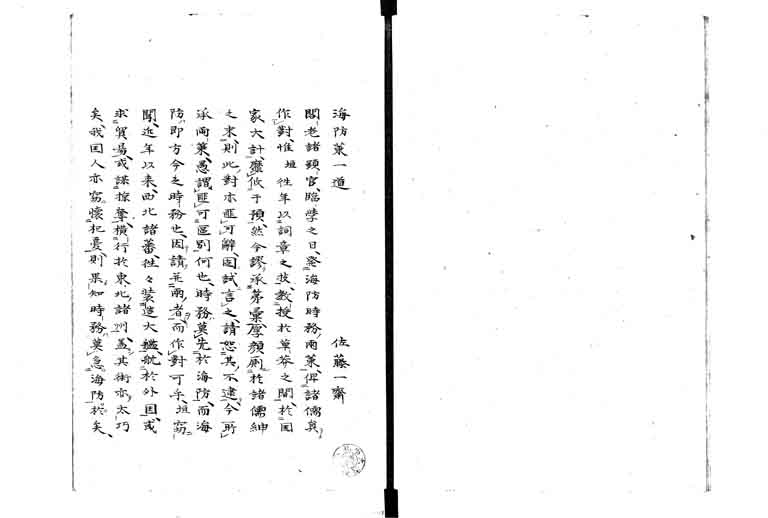 海防策一道
佐藤一齋
閣老諸顕官、臨學之日、発海防時務、兩策俾諸儒員、
作對、惟坦往年以詞章之技、教授於草莽之間、於国
家大計、靡攸干預、然今謬承茅彙厚顔廁於諸儒紳
之末、則此對亦匪可辭、因試言之、請恕其不逮、今所
承兩策、愚謂匪可區別何也、時務莫先於海防、而海
防、即方今之時務也、因請並兩者、而作對可乎、坦窃
聞、近年以来、西北諸蕃、往々装造大艦、航於外国、或
求貿易、或謀掠奪、横行於東北、諸州、蓋其術亦太巧
矣、我国人亦窃懐杞憂、則果知時務莫急海防於矣、